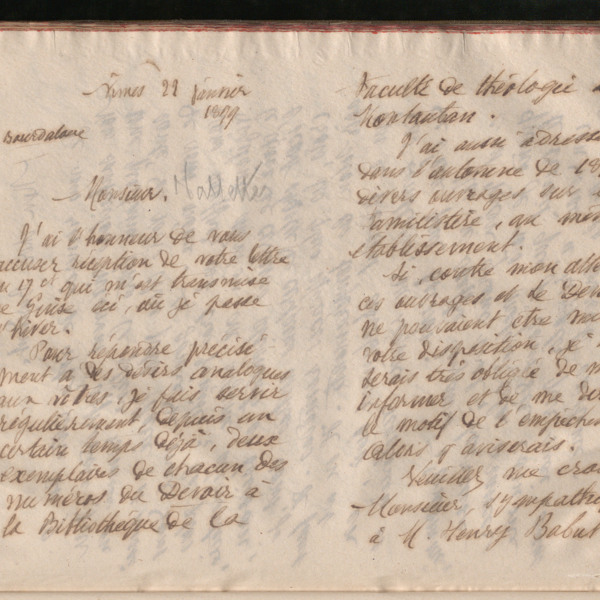 Nîmes 22 janvier
1899
Bourdaloue
Monsieur,
J'ai l'honneur de vous
accuser réception de votre lettre
du 17 ct qui m'est transmise
de Guise ici, où je passe
l'hiver.
Pour répondre précisé-
ment à des désirs analogues
aux vôtres, je fais servir
régulièrement, depuis un
certain temps déjà, deux
exemplaires de chacun des
numéros du Devoir à
la Bibliothèque de la
Faculté de théologie
Montauban.
J'ai aussi adressé
dans l'automne de
divers ouvrages sur
Familistère, au même
établissement.
Si, contre mon
ces ouvrages et le Devoir
ne pouvaient être
votre disposition, je
serais très obligée de
informer et de me
le motif de l'empêche
Alors j'aviserais.
Veuillez me
Monsieur,
à M. Henry Babut